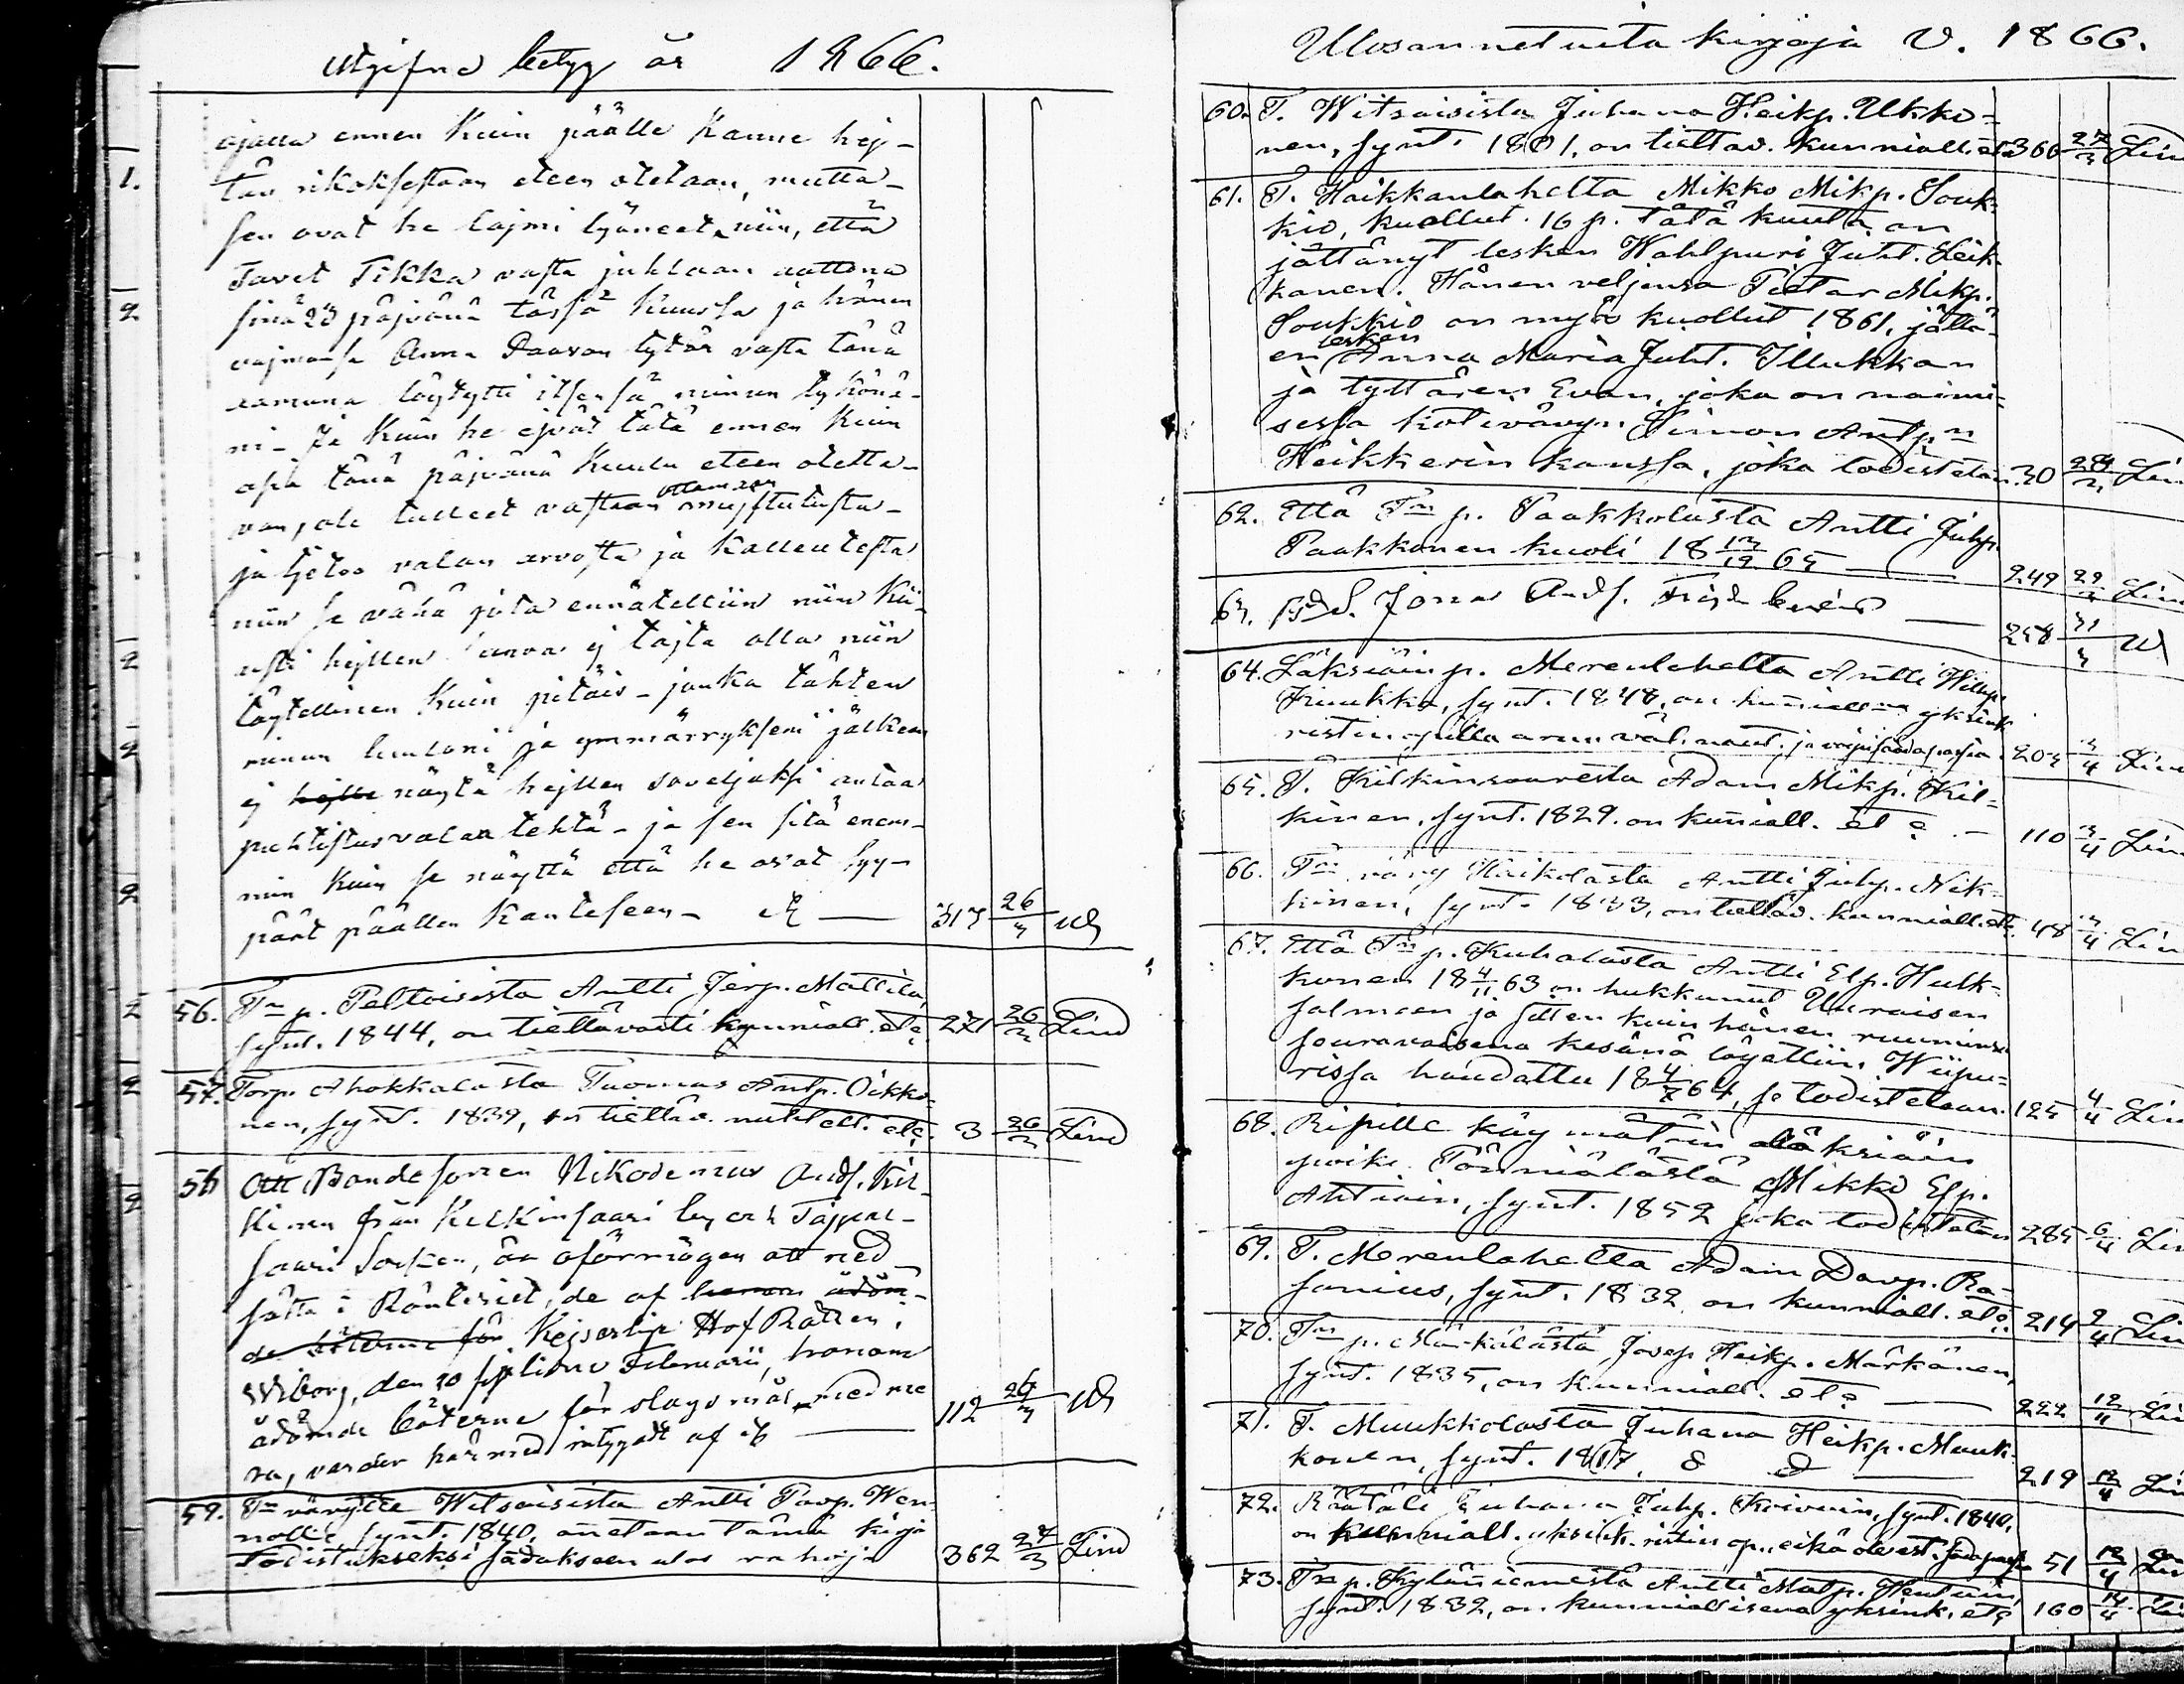 utgifne betyg år 1866.
ajalla ennen kuin päälle kanne hej-
tän rikoksestaan eteen otetaan, mutta-
sen ovat he lajmi lyöneet niin, että
Tavet Tikka vasta juhlaan aattona
sinä 23 päjvänä tässä kuussa ja hänen
vajmonsa Anna Paavon tytär vasta tänä
aamuna löytytti itsensä minun tykönä-
ni- Ja kuin he ejvät tätä ennen kuin
asia tänä päjvänä kuulu eteen otetta-
van, ole tulleet vastaan ottamaan mujstutusta-
ja tjetoa valan arvosta ja kalleudesta
niin se vähä jota ennätettiin niin kii-
resti hejllen tanoa ej tajda olla niin
täytellinen kuin pitäis- jonka tähten
minun luuloni ja ymmärrykseni jälkeen
ej hejlle näytä hejllen soveljaksi antaa
puhtistusvalaa tehtä- ja sen sitä enem-
min kuin se näyttä että he ovat syy-
päät päällen kanteseen-
317 26/3
56. Tn p. Peltoisista Antti Jerp. Mattila,
synt. 1844, on tiettävästi kunniall. etc.
271 26/3 Lind
57. Torp. Ahokkalasta Tuomas Antp. Oikko-
nen, synt. 1839, on tiettäv. nuhteet. etc.
3 26/3 Lind
58 Att Bondesonen Nikodemus Ands. Kil-
kinen från Kilkinsaari by och Tajpal-
saari Socken, är oförmögen att ned-
sätta i Ränteriet, de af honom ådöm-
de böterne för Kejserlige HofRätten i
Wiborg, den 20 sistlidne Februarii, honom
ådömde böterne för slagsmål med me
ra, varder härmed intygadt af
112 26/3
59. Tn vävylle Witsaisista Antti Pavp. Wen
nolle, synt. 1840, annetaan tämä kirja
Todistukseksi sädakseen ulos rahoja
362 27/3 Lind
Ulosannetuita kirjoja V. 1866.
60. T. Witsaisista Juhana Heikp. Ukko-
nen, synt. 1801, on tiettäv. kunniall. etc
366 27/3 Lind
61. T. Haikkanlahelta Mikko Mikp. Souk-
kio, kuollut 16 p. tätä kuuta on
jättänyt lesken Wahlpuri Juht. Leik-
kanen. Hänen veljensä Pietar Mikp.
Soukkio on myös kuollut 1861, jättä-
en lesken Anna Maria Juht. Illukkan
ja tyttären Evan, joka on naimi-
sessa kotivävyn Simon Antp:n
Heikkerin kanssa, joka todistetan.
30 28/3
62. Että Tn p. Paakkolasta Antti Juhp.
Paakkonen kuoli 18 13/12 65
249 29/3 Lind
63. Jonas Ands.
258 31/3
64. Läksiäin p. Merenlahelta Antti Willp.
Kuukka, synt. 1848, on kunniall. yksink
ristinopilla
203 3/4 Lind
65. T. Kilkinsaaresta Adam Mikp. Kil-
kinen, synt. 1829. on kunniall. etc.
110 3/4 Lind
66. Tn vävy Haikolasta Antti Juhp. Nik-
kinen, synt. 1833, on tiettäv. kunniall. etc.
48 3/4 Lind
67. Että Tn p. Kuhalasta Antti Elp. Hulk-
konen 18 4/11 63 on hukkunut Uuraisen
salmeen ja sitten kuin hänen ruumiinsa
seuravaisena kesänä löyettiin, Wiipu-
rissa haudattu 18 4/7 64, se todistetaan.
125 4/4 Lind
68. Ripille käymätöin läksiäin
poika Pönniälästä Mikko Esp.
Ahtiain, synt. 1852 joka todistetan
285 6/4
69. T. Merenlahella Adam Davp. Ra-
sanius, synt. 1832, on kunniall. etc.
214 9/4 Lind
70. Tn p. Märkälästä Josep Heikp. Märkänen,
synt. 1835, on kunniall. etc
222 12/4
71. T. Muukkolasta Juhana Heikp. Muuk-
konen, synt. 1817, d d
219 12/4
72. Räätäli Juhana Juhp. Koivuin, synt. 1840,
on kunniall. yksink. ristin op. eikä ole est.
51 12/4
73. Tn p. Kyläniemestä Antti Matp. Hentuin,
synt. 1832, on kunniallisena yksink. etc
160 14/4